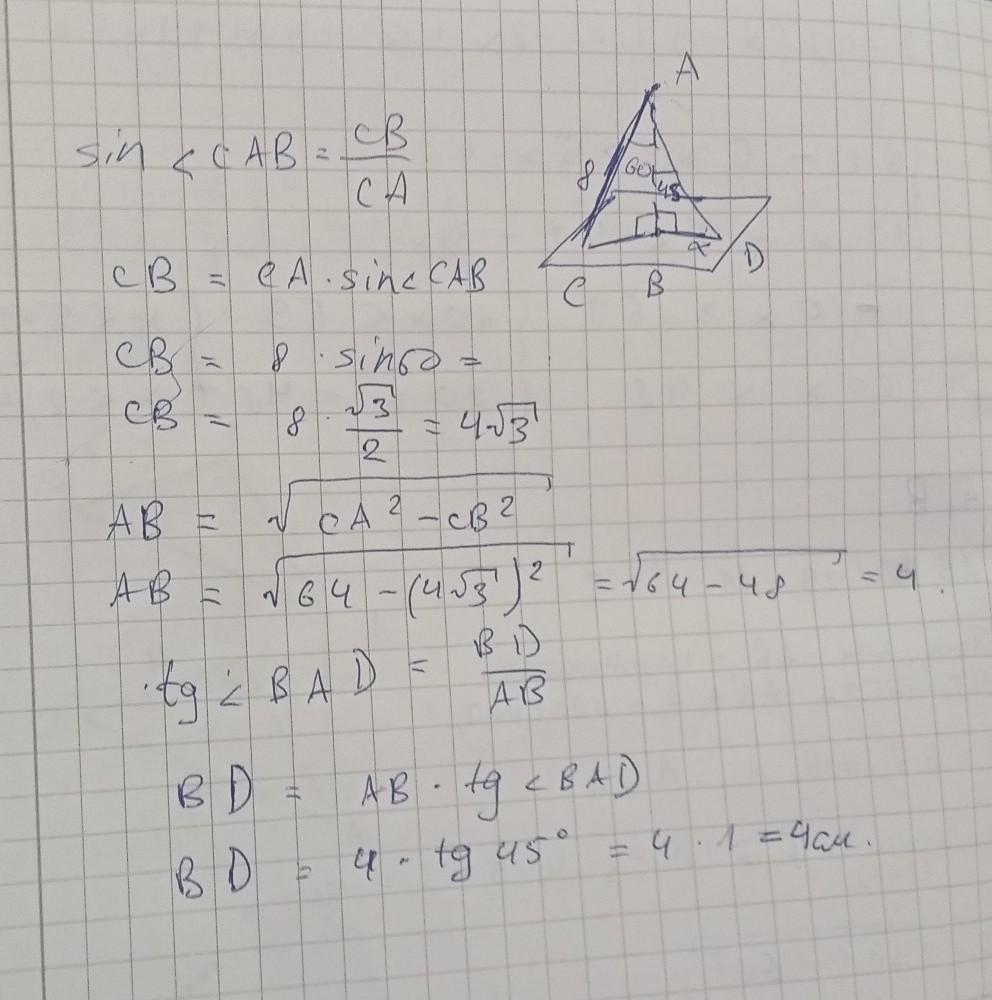 A
sin < CAB = CB / CA
8
60
45
α
C B D
CB = CA · sin < CAB
CB = 8 · sin 60 =
CB = 8 · √3 / 2 = 4√3
AB = √(CA² - CB²)
AB = √(64 - (4√3)²) = √(64 - 48) = 4.
tg < BAD = BD / AB
BD = AB · tg < BAD
BD = 4 · tg 45° = 4 · 1 = 4см.